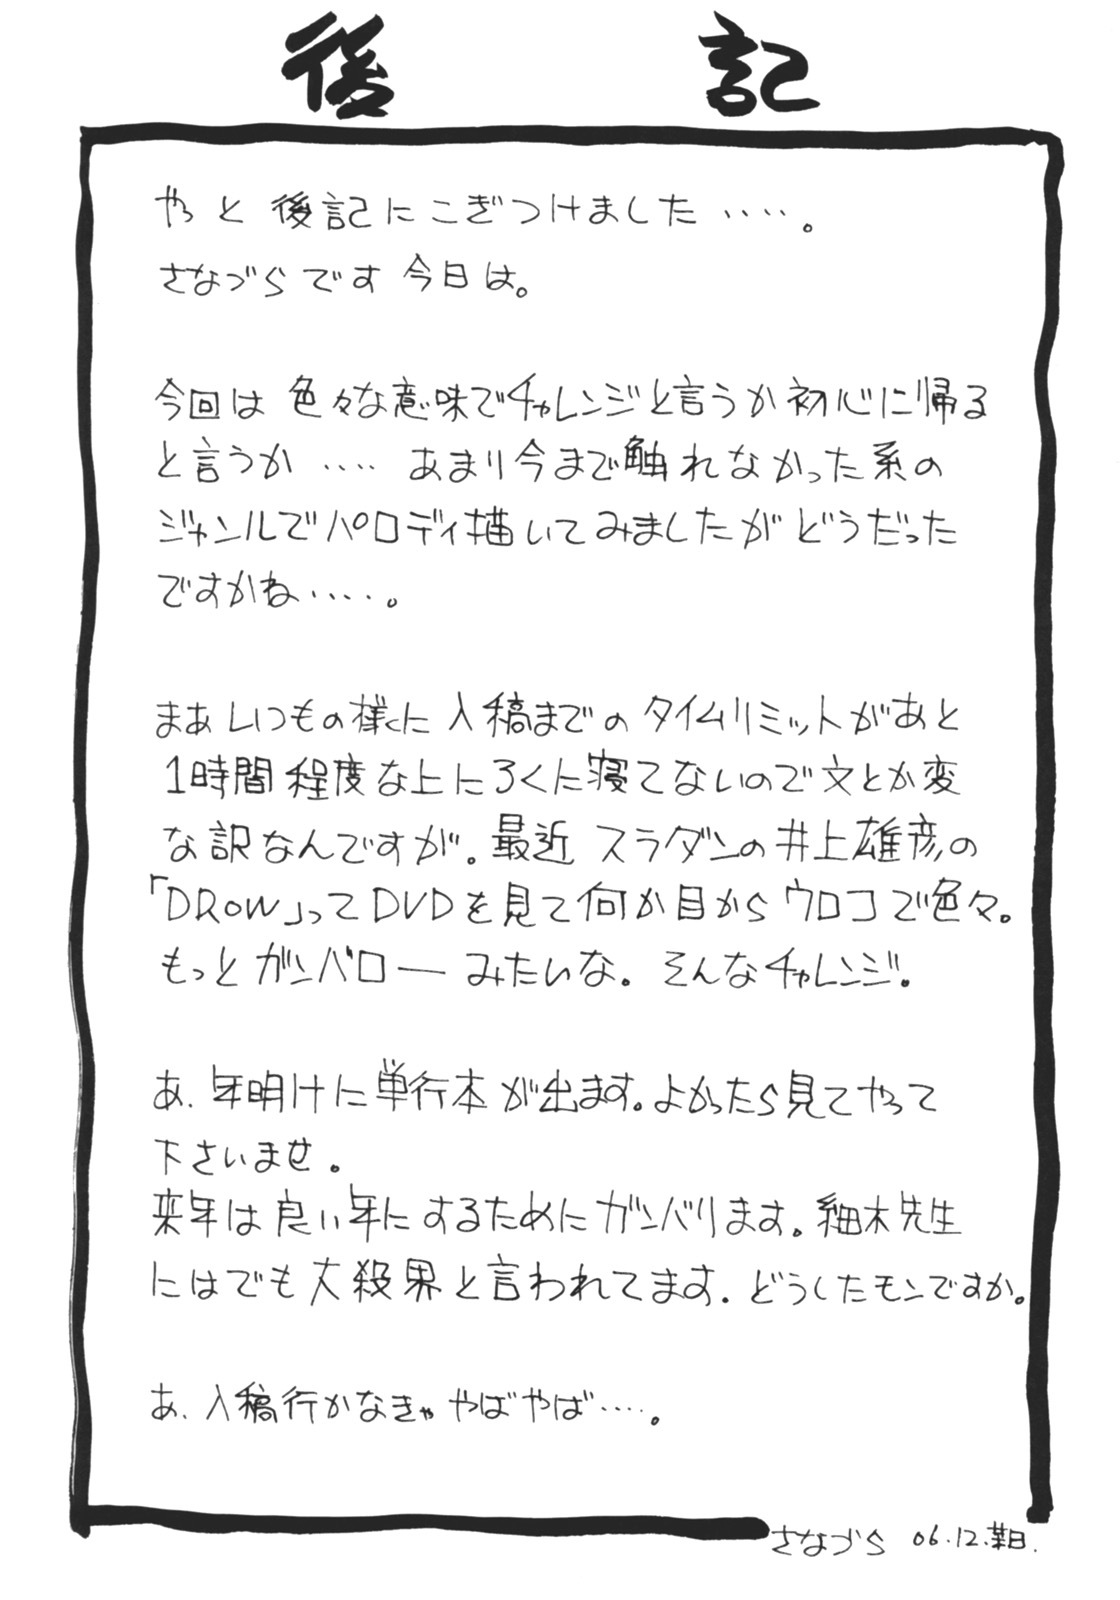 後記
やっと後記にこぎつけました‥‥。
さなづらです今日は。
今回は色々な意味でチャレンジと言うか初心に帰る
と言うか‥‥あまり今まで触れなかった系の
ジャンルでパロディ描いてみましたがどうだった
ですかね‥‥。
まあいつもの様に入稿までのタイムリミットがあと
1時間程度な上にろくに寝てないので文とか変
な訳なんですが。最近スラダンの井上雄彦の
「DROW」ってDVDを見て何か目からウロコで色々。
もっとガンバロー みたいな。そんなチャレンジ。
あ.年明けに単行本が出ます。よかったら見てやって
下さいませ。
来年は良い年にするためにガンバります。細木先生
にはでも大殺界と言われてます.どうしたモンですか。
あ.入稿行かなきゃやばやば‥‥。
さなづら 06.12.某日.